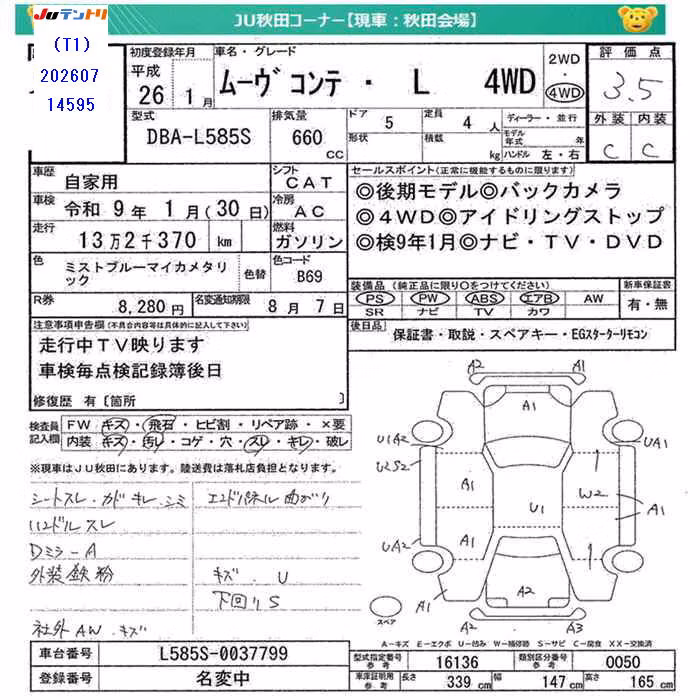 JUテントリ
JU秋田コーナー【現車：秋田会場】
(T1)
202607
14595
初度登録年月
平成
26 1月
車名・グレード
ムーヴ コンテ ・ L 4WD
2WD
・
4WD
評価点
3.5
型式
DBA-L585S
排気量
660
cc
ドア 5
形状
定員 4 人
積載 kg
ディーラー・並行
モデル年式 年
ハンドル 左・右
外装 内装
C C
車歴 自家用
シフト CAT
車検 令和 9年 1月(30日)
冷房 AC
走行 13万2千370 km
燃料 ガソリン
色 ミストブルーマイカメタリック
色替
色コード B69
R券 8,280円
名変通知期限 8月 7日
セールスポイント(正常に機能するものに限ります)
◎後期モデル◎バックカメラ
◎4WD◎アイドリングストップ
◎検9年1月◎ナビ・TV・DVD
装備品 (純正品に限り○をつけてください)
PS PW ABS エアB AW
SR ナビ TV カワ
新車保証書
有・無
後日品
保証書・取説・スペアキー・EGスターターリモコン
注意事項申告欄(不具合内容等は具体的に記入して下さい)
走行中TV映ります
車検毎点検記録簿後日
修復歴 有〔箇所 〕
検査員記入欄
FW キズ・飛石・ヒビ割・リペア跡・×要
内装 キズ・汚レ・コゲ・穴・スレ・キレ・破レ
※現車はJU秋田にあります。陸送費は落札店負担となります。
シートスレ・カドキレ・シミ
エンドパネル曲がり
ハンドルスレ
Dミラ-A
外装鉄粉
キズ・U
下回りS
社外AW・キズ
A2 A1
A1
U1A2
UA1
U2S2
A1
W2
A1
U1
UA2
A1
A1
A2
A2 A3
スペア
A-キズ E-エクボ U-凹み W-補修跡 S-サビ C-腐食 XX-交換済
車台番号 L585S-0037799
登録番号 名変中
型式指定番号 参考 16136
類別区分番号 参考 0050
車庫証明用 参考 長さ 339 cm 幅 147 cm 高さ 165 cm